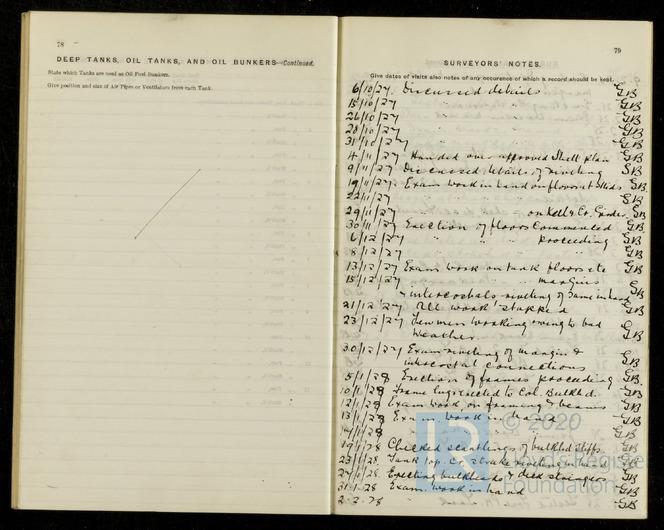 78
DEEP TANKS, OIL TANKS, AND OIL BUNKERS—Continued.
State which Tanks are used as Oil Fuel Bunkers.
Give position and size of Air Pipes or Ventilators from each Tank.
79
SURVEYORS' NOTES.
Give dates of visits also notes of any occurence of which a record should be kept.
6/10/27. Discussed details GB
15/10/27 " " GB
26/10/27 " " GB
28/10/27 " " GB
31/10/27 " " GB
4/11/27 Handed over approved Shell plan GB
9/11/27 Discussed details of riveting GB
19/11/27 Exam work in hand on floors at Slds GB
22/11/27 " " GB
29/11/27 " on Keel & Cr. Girder GB
30/11/27 Erection of floors commenced GB
6/12/27 " " proceeding GB
8/12/27 " " GB
13/12/27 Exam work on tank floors etc GB
15/12/27 " " margins
& intercostals riveting of same in hand GB
21/12/27 All work stopped GB
23/12/27 Few men working owing to bad
weather GB
30/12/27 Exam riveting of margin &
intercostal connections GB
5/1/28 Erection of frames proceeding GB
10/1/28 Frame lugs riveted to Col. Bulkhd. GB
12/1/28 Exam work on framing & beams GB
13/1/28 Exam work in hand GB
17/1/28 " " GB
19/1/28 Checked scantlings of bulkhd stiffs GB
23/1/28 Tank top Cr strake riveting in hand GB
27/1/28 Erecting bulkheads & deck stringers GB
31-1-28 Exam work in hand GB
2-2-28 " GB
© 2020
LR
Lloyd's Register
Foundation